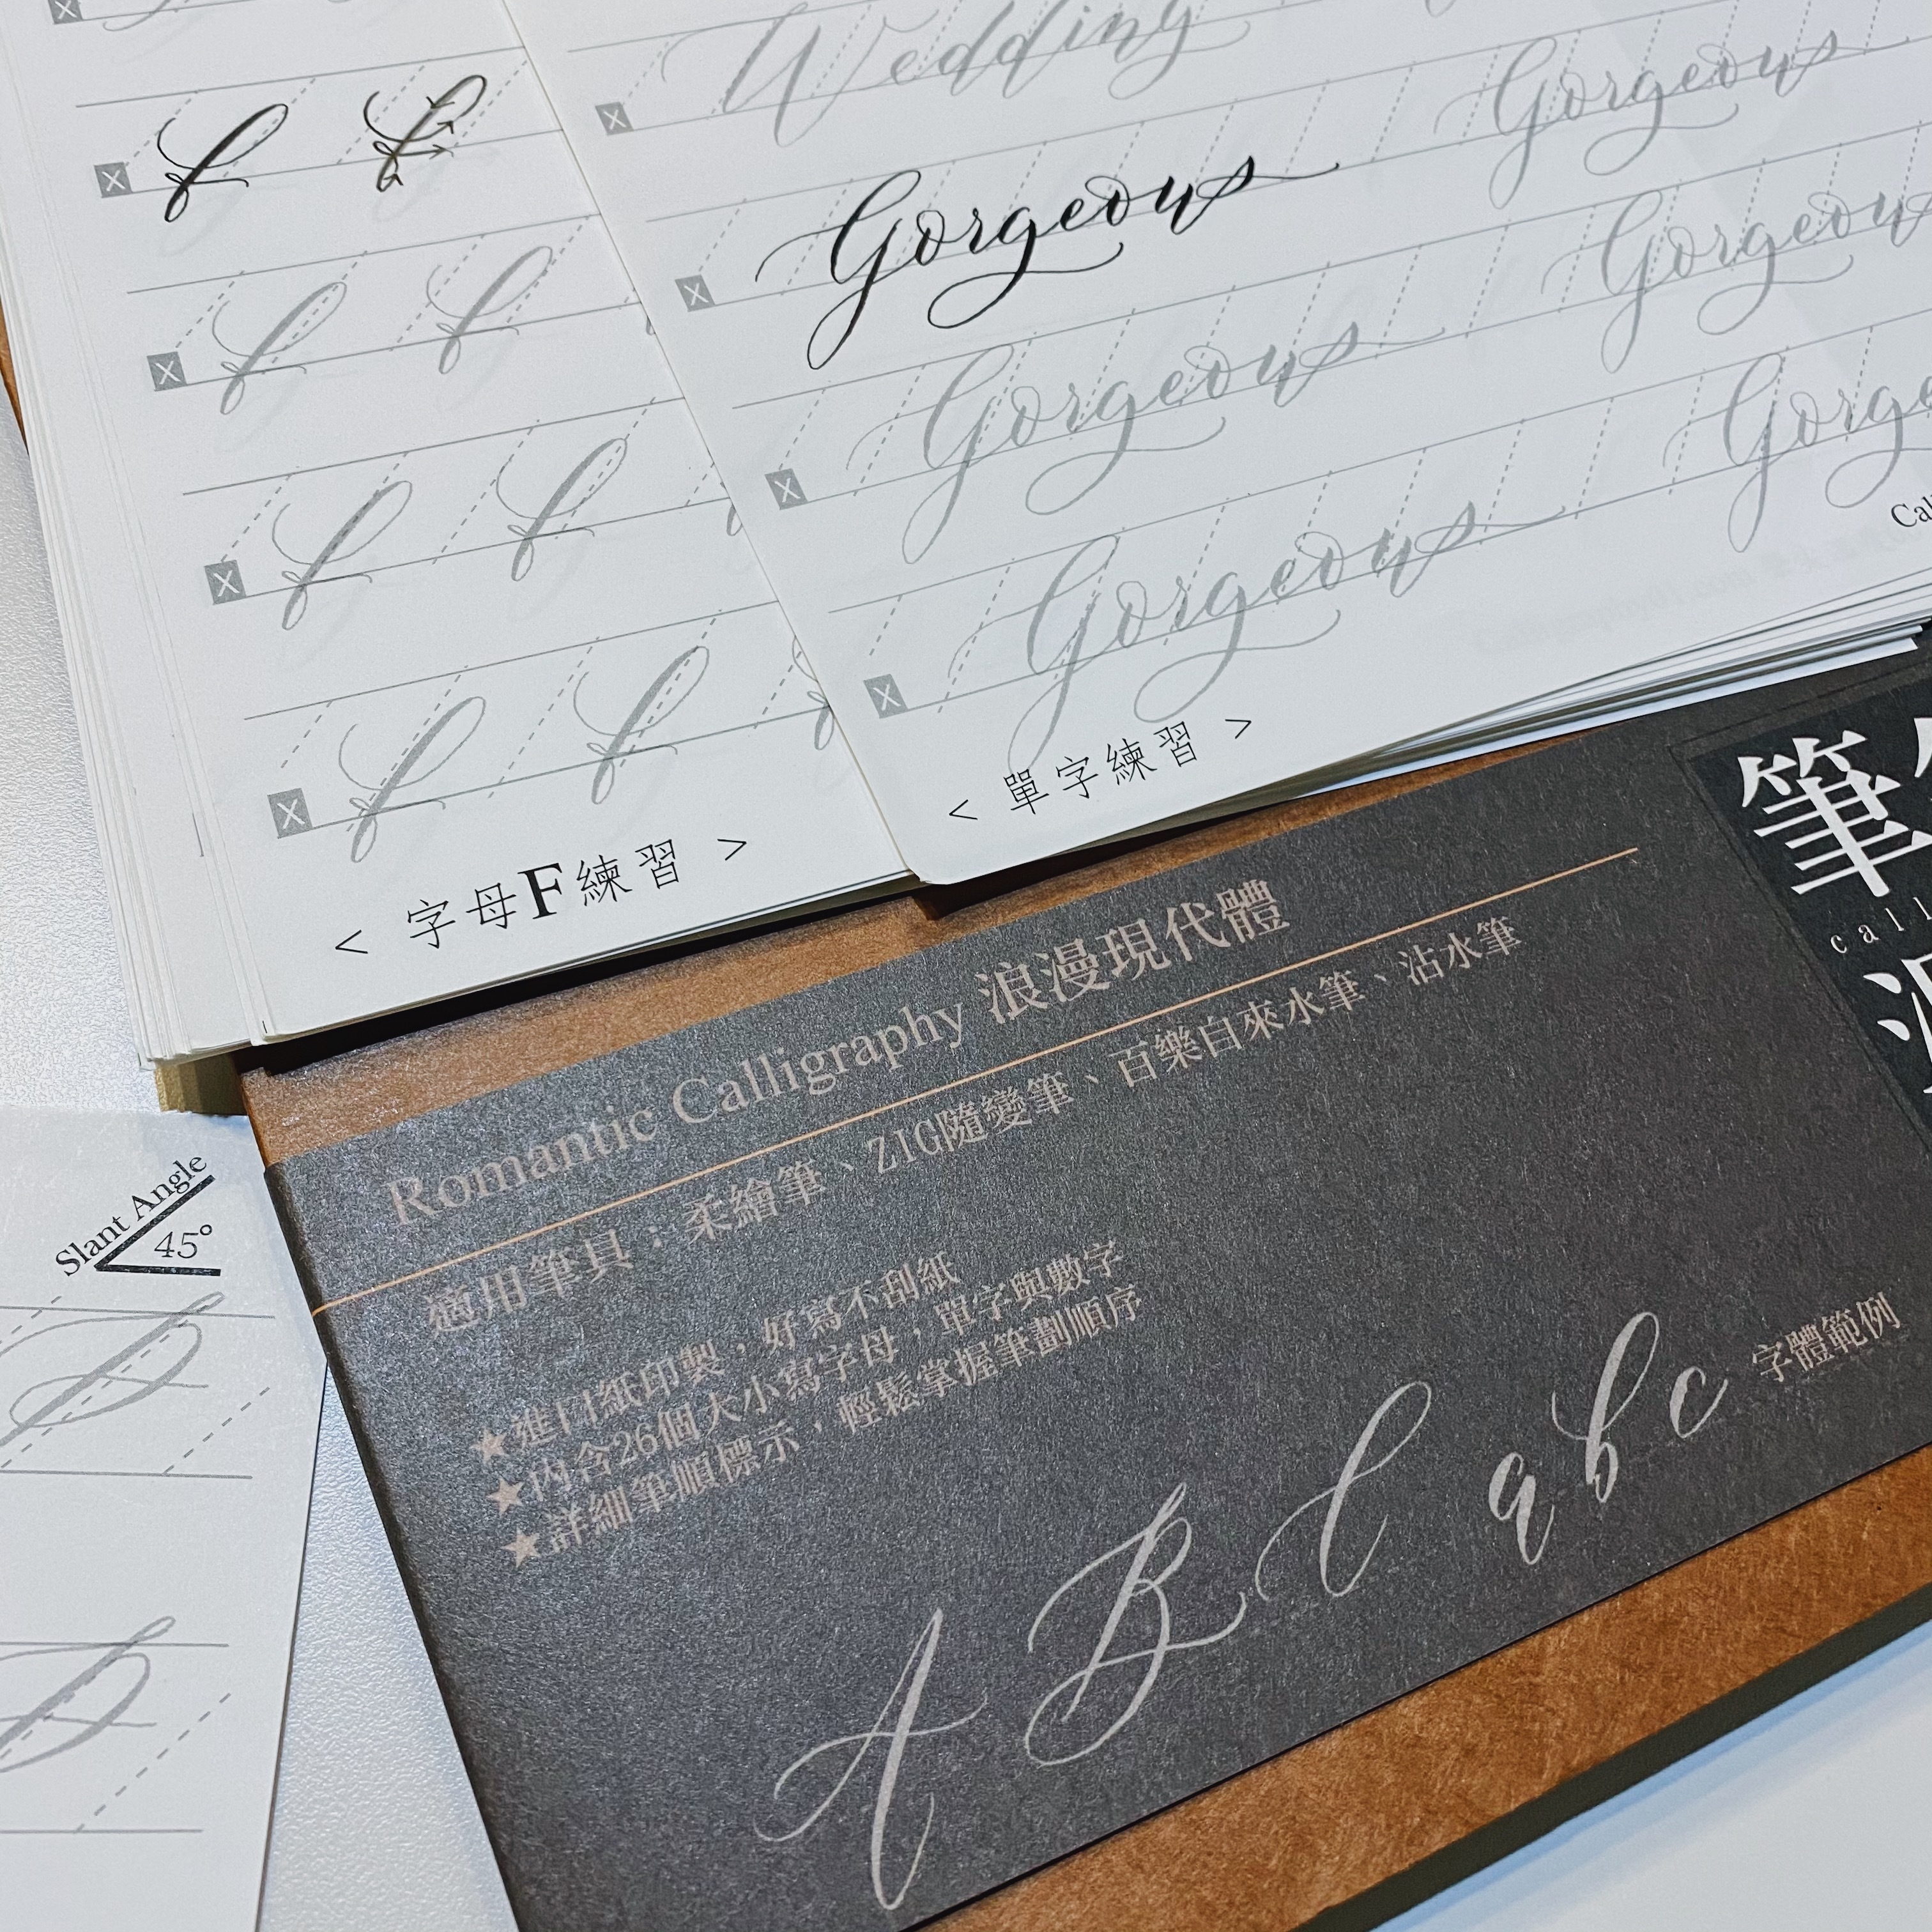 f f
f f
f f
f f
< 字母F練習 >
Wedding
Gorgeous Gorgeous
Gorgeous Gorgeous
Gorgeous
< 單字練習 >
Slant Angle
45°
Romantic Calligraphy 浪漫現代體
適用筆具：柔繪筆、ZIG隨變筆、百樂自來水筆、沾水筆
★進口紙印製，好寫不刮紙
★內含26個大小寫字母，單字與數字
★詳細筆順標示，輕鬆掌握筆劃順序
A B C a b c 字體範例
筆